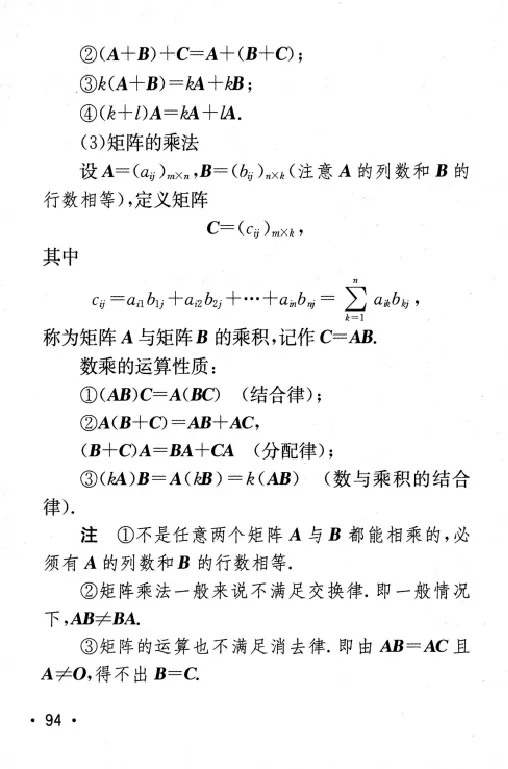 ②(A+B)+C=A+(B+C);
③k(A+B)=kA+kB;
④(k+l)A=kA+lA.
(3)矩阵的乘法
设 A=(aᵢⱼ)ₘ×ₙ,B=(bᵢⱼ)ₙ×ₖ(注意 A 的列数和 B 的
行数相等),定义矩阵
C=(cᵢⱼ)ₘ×ₖ,
其中
cᵢⱼ=aᵢ₁b₁ⱼ+aᵢ₂b₂ⱼ+⋯+aᵢₙbₙⱼ=∑ₖ₌₁ⁿ aᵢₖbₖⱼ,
称为矩阵 A 与矩阵 B 的乘积,记作 C=AB.
数乘的运算性质:
①(AB)C=A(BC) (结合律);
②A(B+C)=AB+AC,
(B+C)A=BA+CA (分配律);
③(kA)B=A(kB)=k(AB) (数与乘积的结合
律).
注 ①不是任意两个矩阵 A 与 B 都能相乘的,必
须有 A 的列数和 B 的行数相等.
②矩阵乘法一般来说不满足交换律.即一般情况
下,AB≠BA.
③矩阵的运算也不满足消去律.即由 AB=AC 且
A≠O,得不出 B=C.
· 94 ·